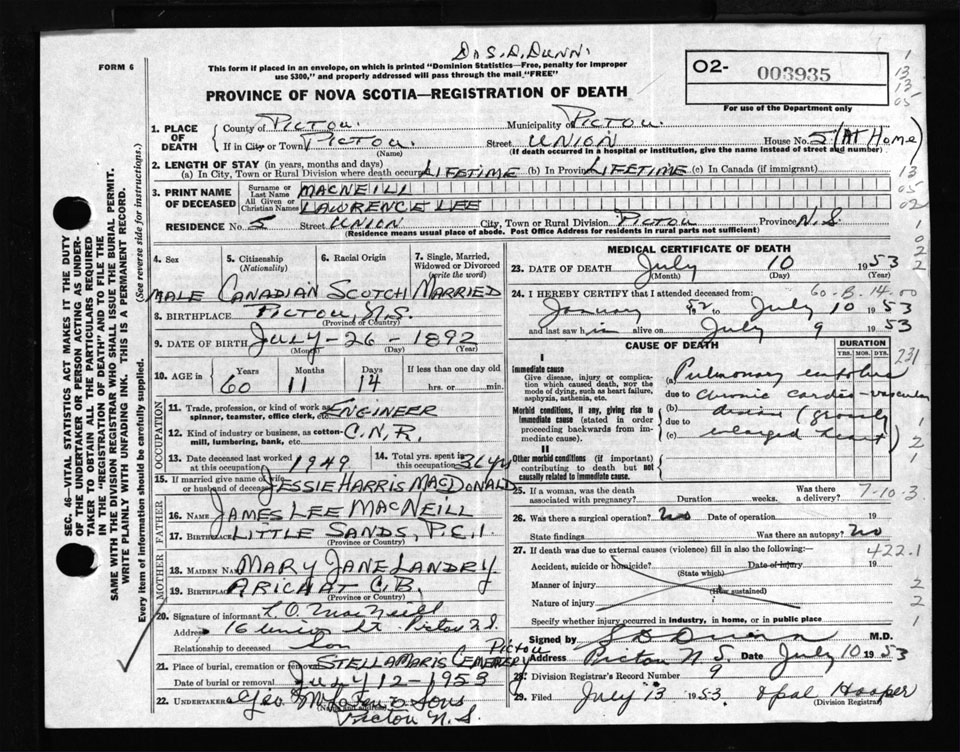 Dr S. D. DUNN.
FORM 6
This form if placed in an envelope, on which is printed "Dominion Statistics—Free, penalty for improper use $300," and properly addressed will pass through the mail "FREE"
O2- 003935
For use of the Department only
PROVINCE OF NOVA SCOTIA—REGISTRATION OF DEATH
1. PLACE OF DEATH
County of PICTOU. Municipality of PICTOU.
If in City or Town PICTOU. (Name) Street UNION House No. 5 (At Home)
(If death occurred in a hospital or institution, give the name instead of street and number)
2. LENGTH OF STAY (in years, months and days)
(a) In City, Town or Rural Division where death occurred LIFETIME (b) In Province LIFETIME (c) In Canada (if immigrant)
3. PRINT NAME OF DECEASED
Surname or Last Name MACNEILL
All Given or Christian Names LAWRENCE LEE
RESIDENCE No. 5 Street UNION City, Town or Rural Division PICTOU Province N.S.
(Residence means usual place of abode. Post Office Address for residents in rural parts not sufficient)
4. Sex
MALE
5. Citizenship (Nationality)
CANADIAN
6. Racial Origin
SCOTCH
7. Single, Married, Widowed or Divorced (write the word)
MARRIED
8. BIRTHPLACE PICTOU, N.S.
(Province or Country)
9. DATE OF BIRTH JULY-26-1892
(Month) (Day) (Year)
10. AGE in Years 60 Months 11 Days 14 If less than one day hrs. or min.
OCCUPATION
11. Trade, profession, or kind of work as spinner, teamster, office clerk, etc. ENGINEER
12. Kind of industry or business, as cotton-mill, lumbering, bank, etc. C.N.R.
13. Date deceased last worked at this occupation 1949
14. Total yrs. spent in this occupation 36 yrs
15. If married give name of wife or husband of deceased JESSIE HARRIS MACDONALD
FATHER
16. Name JAMES LEE MACNEILL
17. Birthplace LITTLE SANDS, P.E.I.
(Province or Country)
MOTHER
18. MAIDEN NAME MARY JANE LANDRY
19. BIRTHPLACE ARICHAT C.B.
(Province or Country)
20. Signature of informant L.O. MacNeill
Address 16 Union St. Pictou N.S.
Relationship to deceased Son
21. Place of burial, cremation or removal STELLA MARIS CEMETERY Pictou
Date of burial or removal July 12-1953
22. UNDERTAKER Geo. & Sons
(Name and address) Pictou N.S.
MEDICAL CERTIFICATE OF DEATH
23. DATE OF DEATH July 10 1953
(Month) (Day) (Year)
60-B.14-00
24. I HEREBY CERTIFY that I attended deceased from:
January 52 to July 10 1953
and last saw him alive on July 9 1953
CAUSE OF DEATH
DURATION
YRS. MOS. DYS.
I
Immediate cause
Give disease, injury or complication which caused death, NOT the mode of dying, such as heart failure, asphyxia, asthenia, etc.
(a) Pulmonary embolus
due to chronic cardio-vascular
Morbid conditions, if any, giving rise to immediate cause (stated in order proceeding backwards from immediate cause).
(b) disease (grossly
due to
(c) enlarged heart)
II
Other morbid conditions (if important) contributing to death but not causally related to immediate cause.
25. If a woman, was the death associated with pregnancy? Duration weeks. Was there a delivery? 7-10-3
26. Was there a surgical operation? No Date of operation 19
State findings Was there an autopsy? No
27. If death was due to external causes (violence) fill in also the following:— 422.1
Accident, suicide or homicide? (State which) Date of injury 19
Manner of injury (How sustained)
Nature of injury
Specify whether injury occurred in industry, in home, or in public place
Signed by S D Dunn M.D.
Address Pictou N.S. Date July 10 1953
28. Division Registrar's Record Number 9
29. Filed July 13 1953. Opal Hooper
(Division Registrar)
SEC. 46—VITAL STATISTICS ACT MAKES IT THE DUTY OF THE UNDERTAKER OR PERSON ACTING AS UNDERTAKER TO OBTAIN ALL THE PARTICULARS REQUIRED IN THE "REGISTRATION OF DEATH" AND TO FILE THE SAME WITH THE DIVISION REGISTRAR WHO SHALL ISSUE THE BURIAL PERMIT.
WRITE PLAINLY WITH UNFADING INK. THIS IS A PERMANENT RECORD.
Every item of information should be carefully supplied. (See reverse side for instructions.)
1
13
13
05
13
05
02
1
0
2
2
231
1
2
1
2
2
1